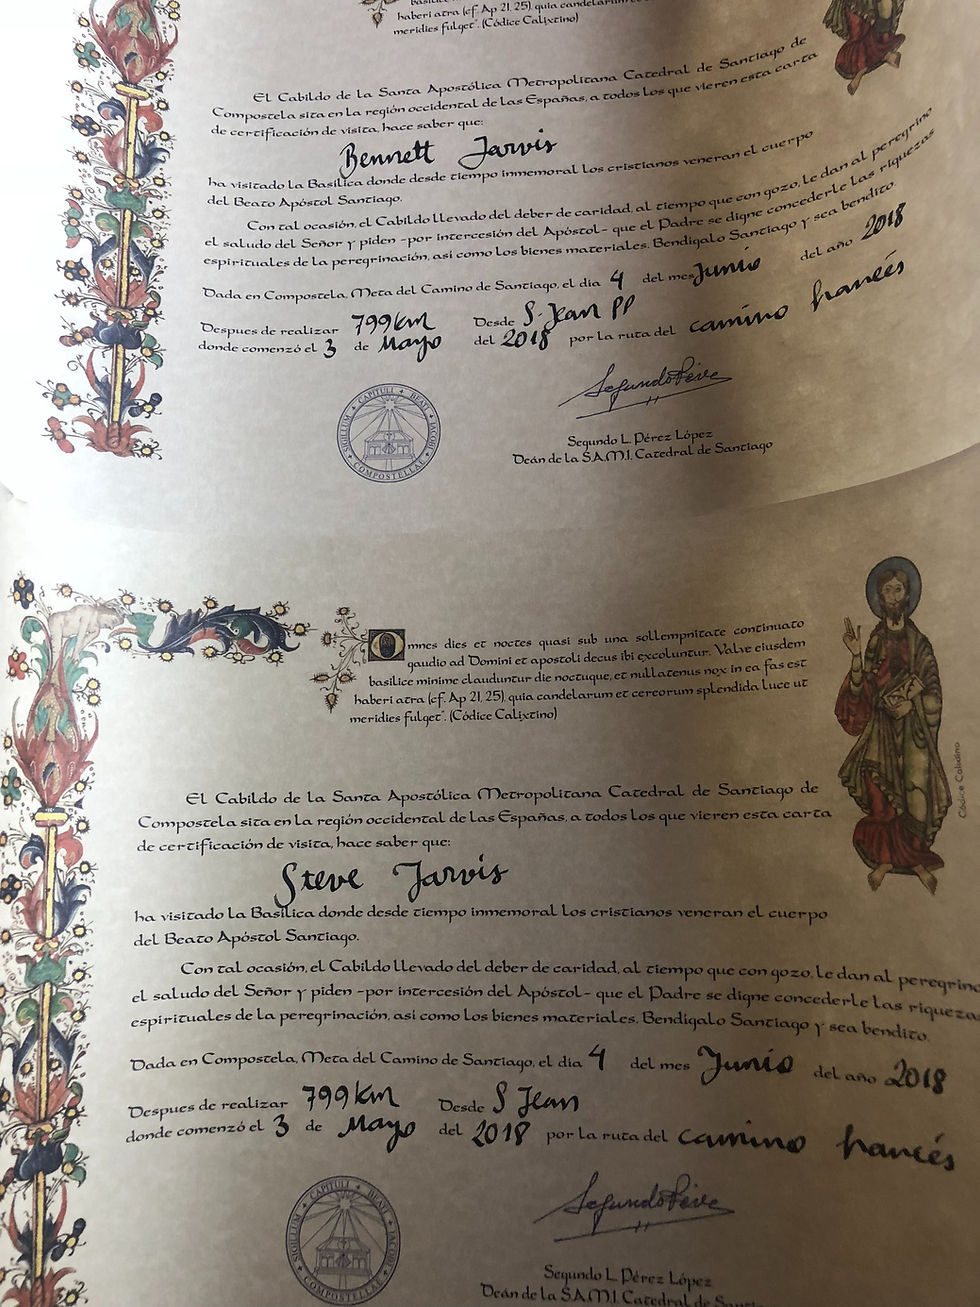 basilice minime clauduntur die noctuque, et nullatenus nox in ea fas est
haberi atra (cf. Ap 21, 25), quia candelarum et cereorum splendida luce ut
meridies fulget". (Códice Calixtino)
El Cabildo de la Santa Apostólica Metropolitana Catedral de Santiago de
Compostela sita en la región occidental de las Españas, a todos los que vieren esta carta
de certificación de visita, hace saber que:
Bennett Jarvis
ha visitado la Basílica donde desde tiempo inmemoral los cristianos veneran el cuerpo
del Beato Apóstol Santiago.
Con tal ocasión, el Cabildo llevado del deber de caridad, al tiempo que con gozo, le dan al peregrino
el saludo del Señor y piden -por intercesión del Apóstol- que el Padre se digne concederle las riquezas
espirituales de la peregrinación, así como los bienes materiales. Bendígalo Santiago y sea bendito.
Dada en Compostela, Meta del Camino de Santiago, el día 4 del mes Junio del año 2018
Despues de realizar 799 km Desde S. Jean PP
donde comenzó el 3 de Mayo del 2018 por la ruta del camino francés
SIGILLUM CAPITULI BEATI JACOBI COMPOSTELLAE
Segundo Pérez
Segundo L. Pérez López
Deán de la S.A.M.I. Catedral de Santiago
Omnes dies et noctes quasi sub una sollempnitate continuato
gaudio ad Domini et apostoli decus ibi excoluntur. Valve eiusdem
basilice minime clauduntur die noctuque, et nullatenus nox in ea fas est
haberi atra (cf. Ap 21, 25), quia candelarum et cereorum splendida luce ut
meridies fulget". (Códice Calixtino)
Códice Calixtino
El Cabildo de la Santa Apostólica Metropolitana Catedral de Santiago de
Compostela sita en la región occidental de las Españas, a todos los que vieren esta carta
de certificación de visita, hace saber que:
Steve Jarvis
ha visitado la Basílica donde desde tiempo inmemoral los cristianos veneran el cuerpo
del Beato Apóstol Santiago.
Con tal ocasión, el Cabildo llevado del deber de caridad, al tiempo que con gozo, le dan al peregrino
el saludo del Señor y piden -por intercesión del Apóstol- que el Padre se digne concederle las riquezas
espirituales de la peregrinación, así como los bienes materiales. Bendígalo Santiago y sea bendito.
Dada en Compostela, Meta del Camino de Santiago, el día 4 del mes Junio del año 2018
Despues de realizar 799 km Desde S Jean
donde comenzó el 3 de Mayo del 2018 por la ruta del camino francés
SIGILLUM CAPITULI BEATI JACOBI COMPOSTELLAE
Segundo Pérez
Segundo L. Pérez López
Deán de la S.A.M.I. Catedral de